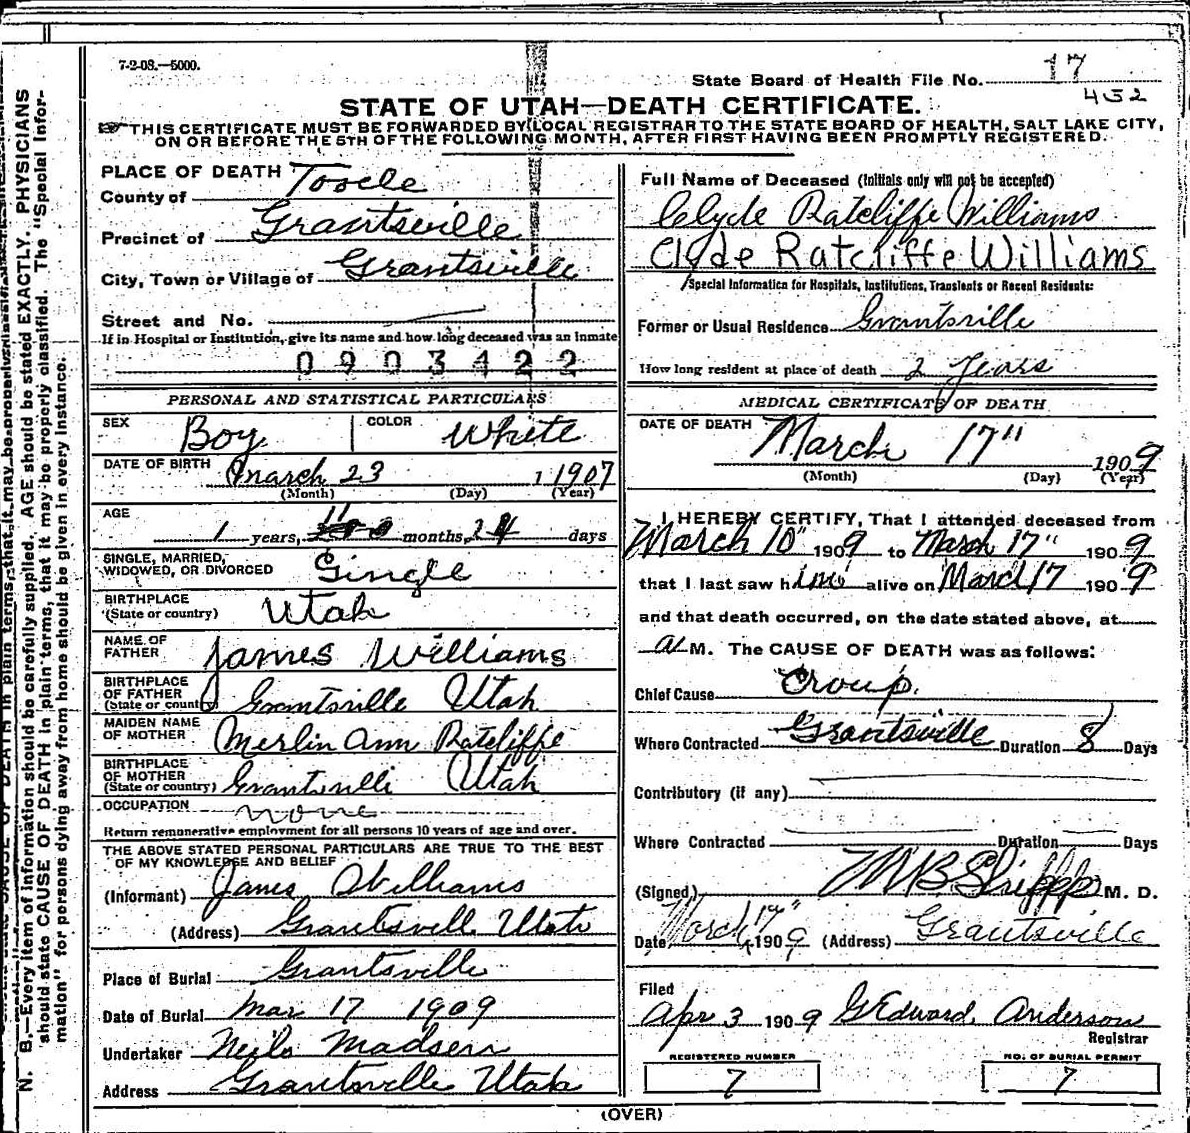 7-2-08.—5000.
State Board of Health File No. 17
452
STATE OF UTAH—DEATH CERTIFICATE.
THIS CERTIFICATE MUST BE FORWARDED BY LOCAL REGISTRAR TO THE STATE BOARD OF HEALTH, SALT LAKE CITY,
ON OR BEFORE THE 5TH OF THE FOLLOWING MONTH, AFTER FIRST HAVING BEEN PROMPTLY REGISTERED.
PLACE OF DEATH
County of Tooele
Precinct of Grantsville
City, Town or Village of Grantsville
Street and No.
If in Hospital or Institution, give its name and how long deceased was an inmate
0903422
PERSONAL AND STATISTICAL PARTICULARS
SEX Boy COLOR White
DATE OF BIRTH March 23 1907
(Month) (Day) (Year)
AGE
1 years, 11 months, 24 days
SINGLE, MARRIED,
WIDOWED, OR DIVORCED Single
BIRTHPLACE
(State or country) Utah
NAME OF
FATHER James Williams
BIRTHPLACE
OF FATHER
(State or country) Grantsville Utah
MAIDEN NAME
OF MOTHER Merlin Ann Ratcliffe
BIRTHPLACE
OF MOTHER
(State or country) Grantsvilli Utah
OCCUPATION none
Return remunerative employment for all persons 10 years of age and over.
THE ABOVE STATED PERSONAL PARTICULARS ARE TRUE TO THE BEST
OF MY KNOWLEDGE AND BELIEF
(Informant) James Williams
(Address) Grantsvill Utah
Place of Burial Grantsville
Date of Burial Mar 17 1909
Undertaker Neils Madsen
Address Grantsville Utah
Full Name of Deceased (Initials only will not be accepted)
Clyde Ratcliffe Williams
Clyde Ratcliffe Williams
Special Information for Hospitals, Institutions, Transients or Recent Residents:
Former or Usual Residence Grantsville
How long resident at place of death 2 Years
MEDICAL CERTIFICATE OF DEATH
DATE OF DEATH March 17" 1909
(Month) (Day) (Year)
I HEREBY CERTIFY, That I attended deceased from
March 10" 1909 to March 17" 1909
that I last saw him alive on March 17 1909
and that death occurred, on the date stated above, at
a M. The CAUSE OF DEATH was as follows:
Chief Cause Croup.
Where Contracted Grantsville Duration 8 Days
Contributory (if any)
Where Contracted Duration Days
(Signed) M. D.
Date March 17" 1909 (Address) Grantsville
Filed
Apr 3 1909 G Edward Anderson
Registrar
REGISTERED NUMBER
7
NO. OF BURIAL PERMIT
7
(OVER)
N. B.—Every item of information should be carefully supplied. AGE should be stated EXACTLY. PHYSICIANS
should state CAUSE OF DEATH in plain terms, that it may be properly classified. The "Special Infor-
mation" for persons dying away from home should be given in every instance.